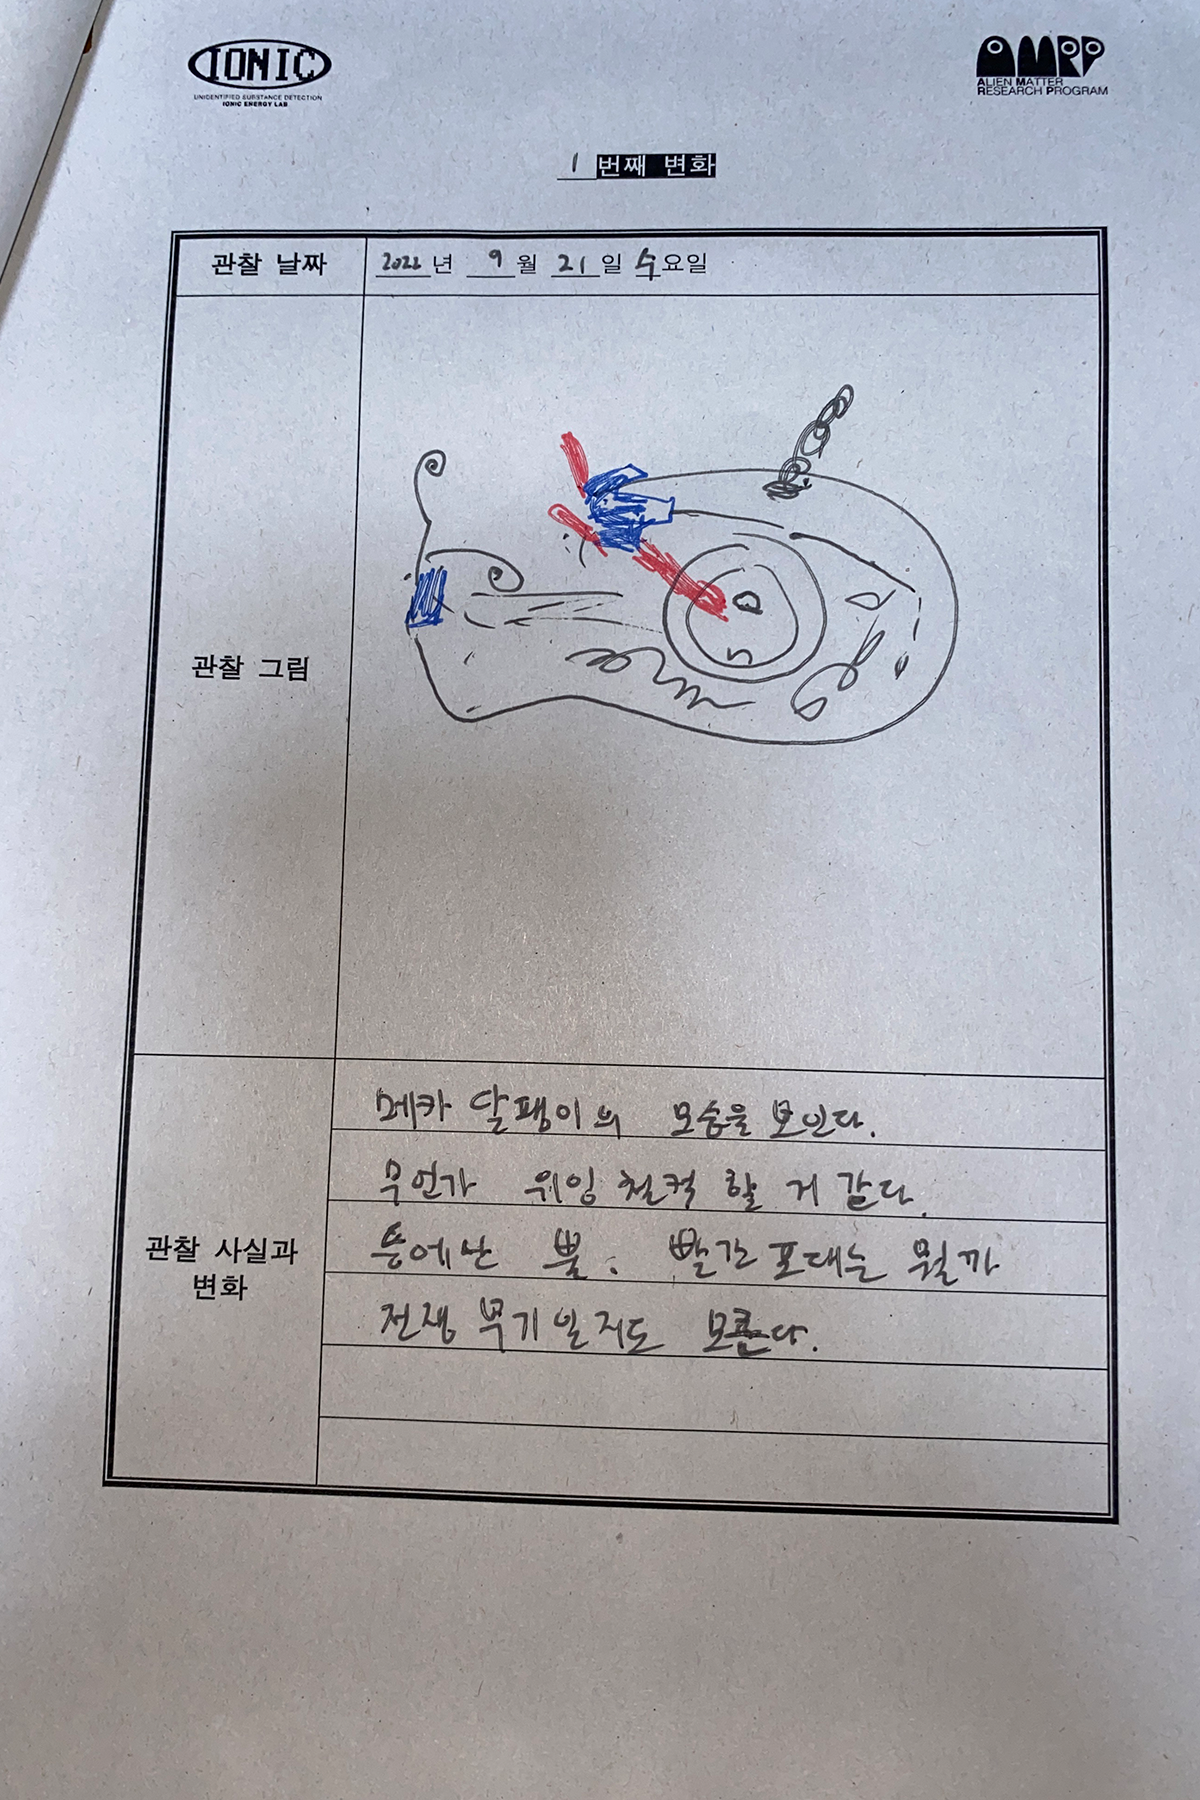 IONIC
UNIDENTIFIED SUBSTANCE DETECTION
IONIC ENERGY LAB
AMRP
ALIEN MATTER
RESEARCH PROGRAM
1 번째 변화
관찰 날짜
2022년 9월 21일 수요일
관찰 그림
관찰 사실과
변화
메카 달팽이의 모습을 보인다.
무언가 위잉 철컥 할 거 같다.
등에난 뿔. 빨간 포대는 뭘까
전쟁 무기일지도 모른다.